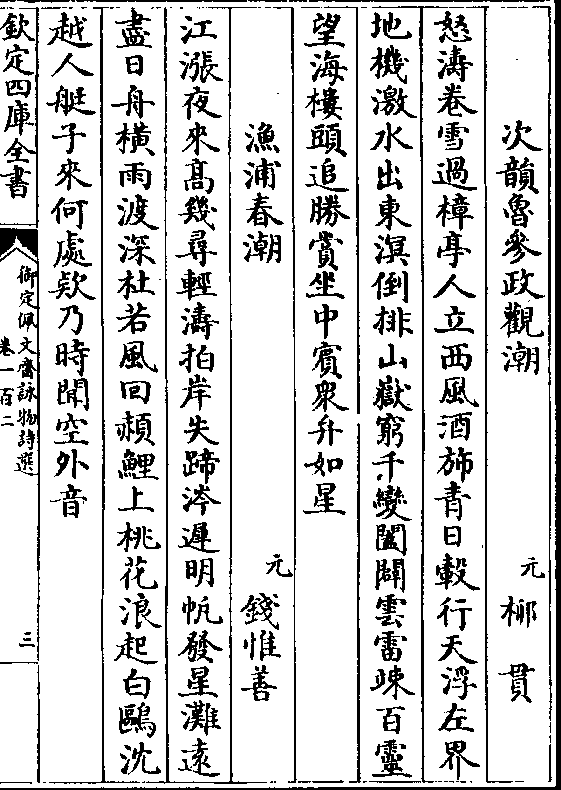 次韻魯參政觀潮
元 桺貫
怒濤卷雪過樟亭人立西風酒斾青日轂行天浮左界
地機激水出東溟倒排山嶽窮千變闔闢雲雷竦百靈
望海樓頭追勝賞坐中賓衆弁如星
漁浦春潮
元 錢惟善
江漲夜來髙幾尋輕濤拍岸失蹄涔遲明帆發星灘逺
盡日舟橫雨渡深杜若風回赬鯉上桃花浪起白鷗沈
越人艇子來何處欵乃時聞空外音
欽定四庫全書
御定佩文齋詠物詩選
卷一百二
三